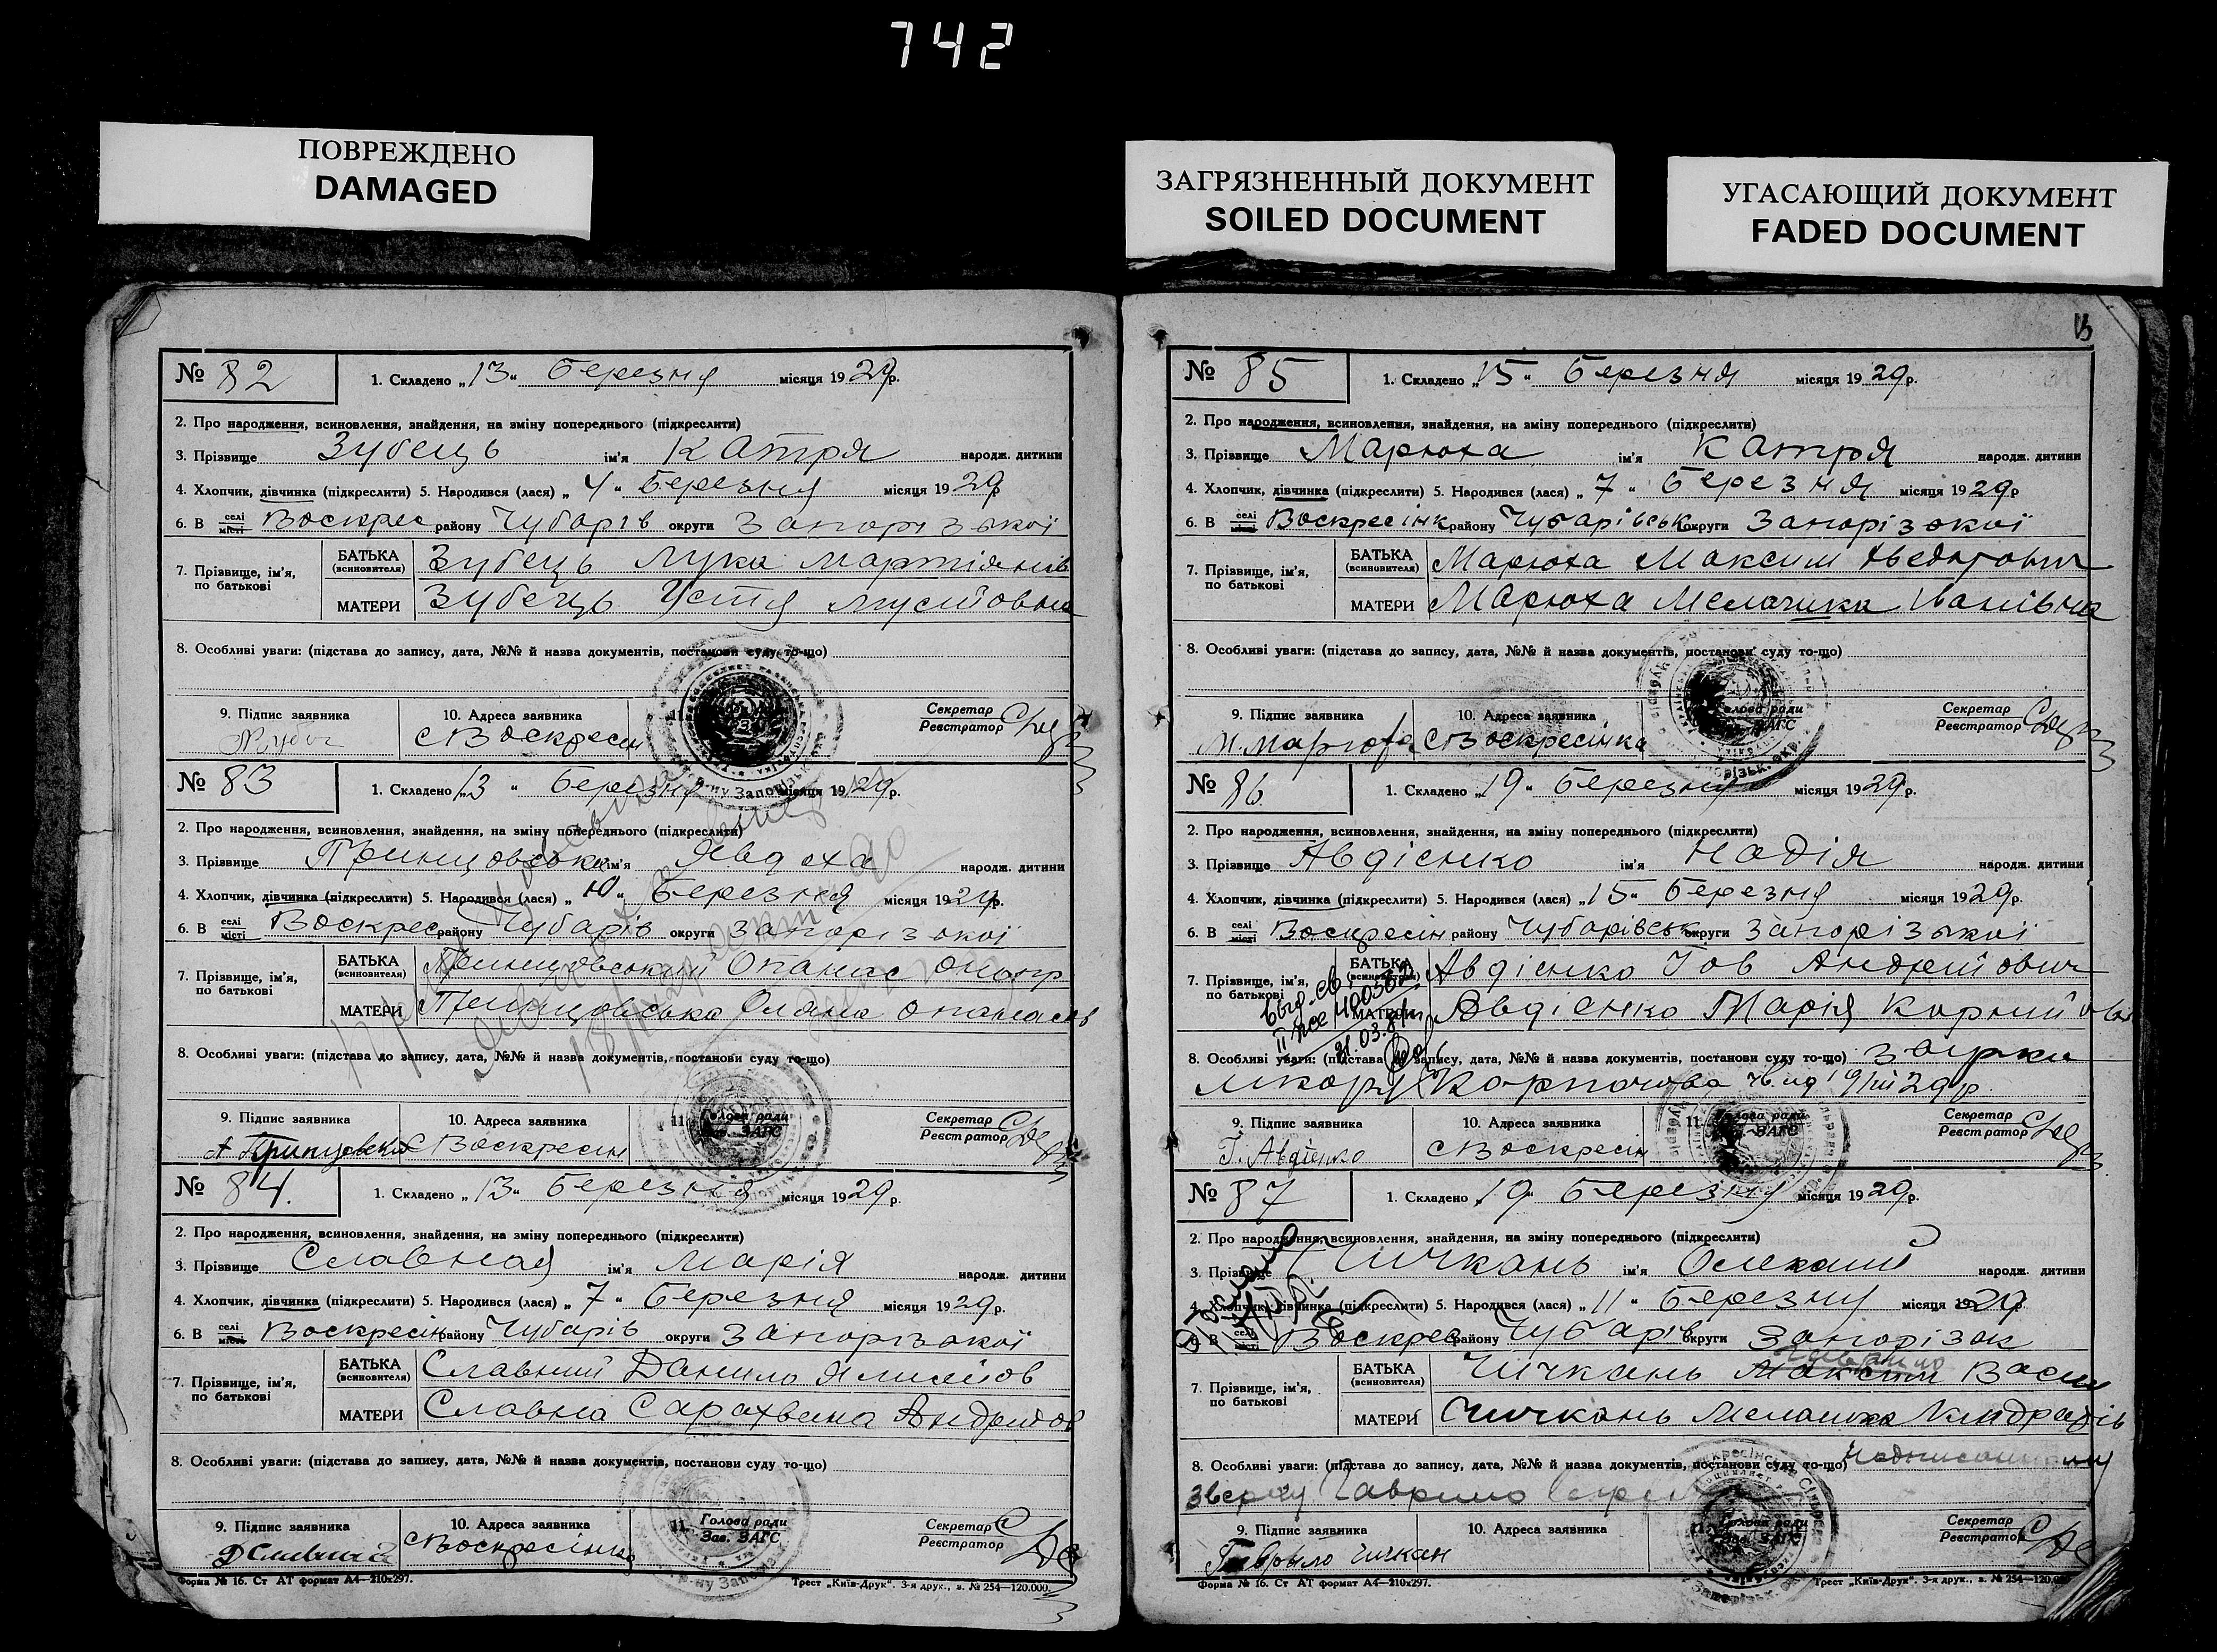 742
ПОВРЕЖДЕНО
DAMAGED
ЗАГРЯЗНЕННЫЙ ДОКУМЕНТ
SOILED DOCUMENT
УГАСАЮЩИЙ ДОКУМЕНТ
FADED DOCUMENT
№ 82 1. Складено „13" Березня місяця 1929р.
2. Про народження, всиновлення, знайдення, на зміну попереднього (підкреслити)
3. Прізвище Зубець ім'я Катря народж. дитини
4. Хлопчик, дівчинка (підкреслити) 5. Народився (лася) „4" Березня місяця 1929р
6. В селі місті Воскрес району Чубарів округи Запорізької
7. Прізвище, ім'я, по батькові БАТЬКА (всиновителя) Зубець Лука Мартіянів
МАТЕРИ Зубець Устя
8. Особливі уваги: (підстава до запису, дата, №№ й назва документів, постанови суду то-що)
9. Підпис заявника 10. Адреса заявника 11. Секретар Реєстратор
С Воскресін
№ 83 1. Складено „13" Березня місяця 1929р.
2. Про народження, всиновлення, знайдення, на зміну попереднього (підкреслити)
3. Прізвище ім'я Явдоха народж. дитини
4. Хлопчик, дівчинка (підкреслити) 5. Народився (лася) „10" Березня місяця 1929р.
6. В селі місті Воскрес району Чубарів округи Запорізької
7. Прізвище, ім'я, по батькові БАТЬКА (всиновителя) Опанас
МАТЕРИ Опанасів
8. Особливі уваги: (підстава до запису, дата, №№ й назва документів, постанови суду то-що)
9. Підпис заявника 10. Адреса заявника 11. Голова ради Зав. ЗАГС Секретар Реєстратор
С Воскресін
№ 84. 1. Складено „13" Березня місяця 1929р.
2. Про народження, всиновлення, знайдення, на зміну попереднього (підкреслити)
3. Прізвище Славная ім'я Марія народж. дитини
4. Хлопчик, дівчинка (підкреслити) 5. Народився (лася) „7" Березня місяця 1929р.
6. В селі місті Воскресін району Чубарів округи Запорізької
7. Прізвище, ім'я, по батькові БАТЬКА (всиновителя) Славний Данило
МАТЕРИ Славна
8. Особливі уваги: (підстава до запису, дата, №№ й назва документів, постанови суду то-що)
9. Підпис заявника 10. Адреса заявника 11. Голова ради Зав. ЗАГС Секретар Реєстратор
С Воскресінка
Форма № 16. Ст АТ формат А4—210х297. Трест „Київ-Друк". 3-я друк., з. № 254—120.000.
№ 85 1. Складено „15" Березня місяця 1929р.
2. Про народження, всиновлення, знайдення, на зміну попереднього (підкреслити)
3. Прізвище Марюха ім'я Катря народж. дитини
4. Хлопчик, дівчинка (підкреслити) 5. Народився (лася) „7" Березня місяця 1929р
6. В селі місті Воскресінк району Чубарівськ округи Запорізької
7. Прізвище, ім'я, по батькові БАТЬКА (всиновителя) Марюха Максим
МАТЕРИ Марюха Мелашка Іванівна
8. Особливі уваги: (підстава до запису, дата, №№ й назва документів, постанови суду то-що)
9. Підпис заявника 10. Адреса заявника Голова ради ЗАГС Секретар Реєстратор
М. Марюха С Воскресінка
№ 86. 1. Складено „19" Березня місяця 1929р.
2. Про народження, всиновлення, знайдення, на зміну попереднього (підкреслити)
3. Прізвище Авдієнко ім'я Надія народж. дитини
4. Хлопчик, дівчинка (підкреслити) 5. Народився (лася) „15" Березня місяця 1929р.
6. В селі місті Воскресін району Чубарівськ округи Запорізької
7. Прізвище, ім'я, по батькові БАТЬКА (всиновителя) Авдієнко Іов Андрійович
МАТЕРИ Авдієнко Марія
8. Особливі уваги: (підстава до запису, дата, №№ й назва документів, постанови суду то-що)
9. Підпис заявника 10. Адреса заявника 11. Голова ради ЗАГС Секретар Реєстратор
І. Авдієнко С Воскресін
№ 87 1. Складено „19" Березня місяця 1929р.
2. Про народження, всиновлення, знайдення, на зміну попереднього (підкреслити)
3. Прізвище Чичкань ім'я народж. дитини
4. Хлопчик, дівчинка (підкреслити) 5. Народився (лася) „11" Березня місяця 1929р
6. В селі місті Воскрес району Чубарів округи Запорізьк
7. Прізвище, ім'я, по батькові БАТЬКА (всиновителя) Чичкань Максим
МАТЕРИ Чичкань Мелашка
8. Особливі уваги: (підстава до запису, дата, №№ й назва документів, постанови суду то-що)
9. Підпис заявника 10. Адреса заявника 11. Голова ради Зав. ЗАГС Секретар Реєстратор
Гаврыло Чичкан
Форма № 16. Ст АТ формат А4—210х297. Трест „Київ-Друк". 3-я друк., з. № 254—120.000